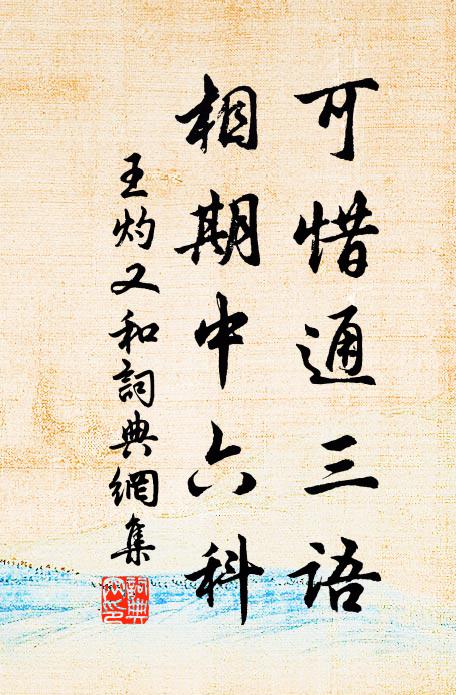 可惜通三語
相期中六科
王灼又和詞典網集